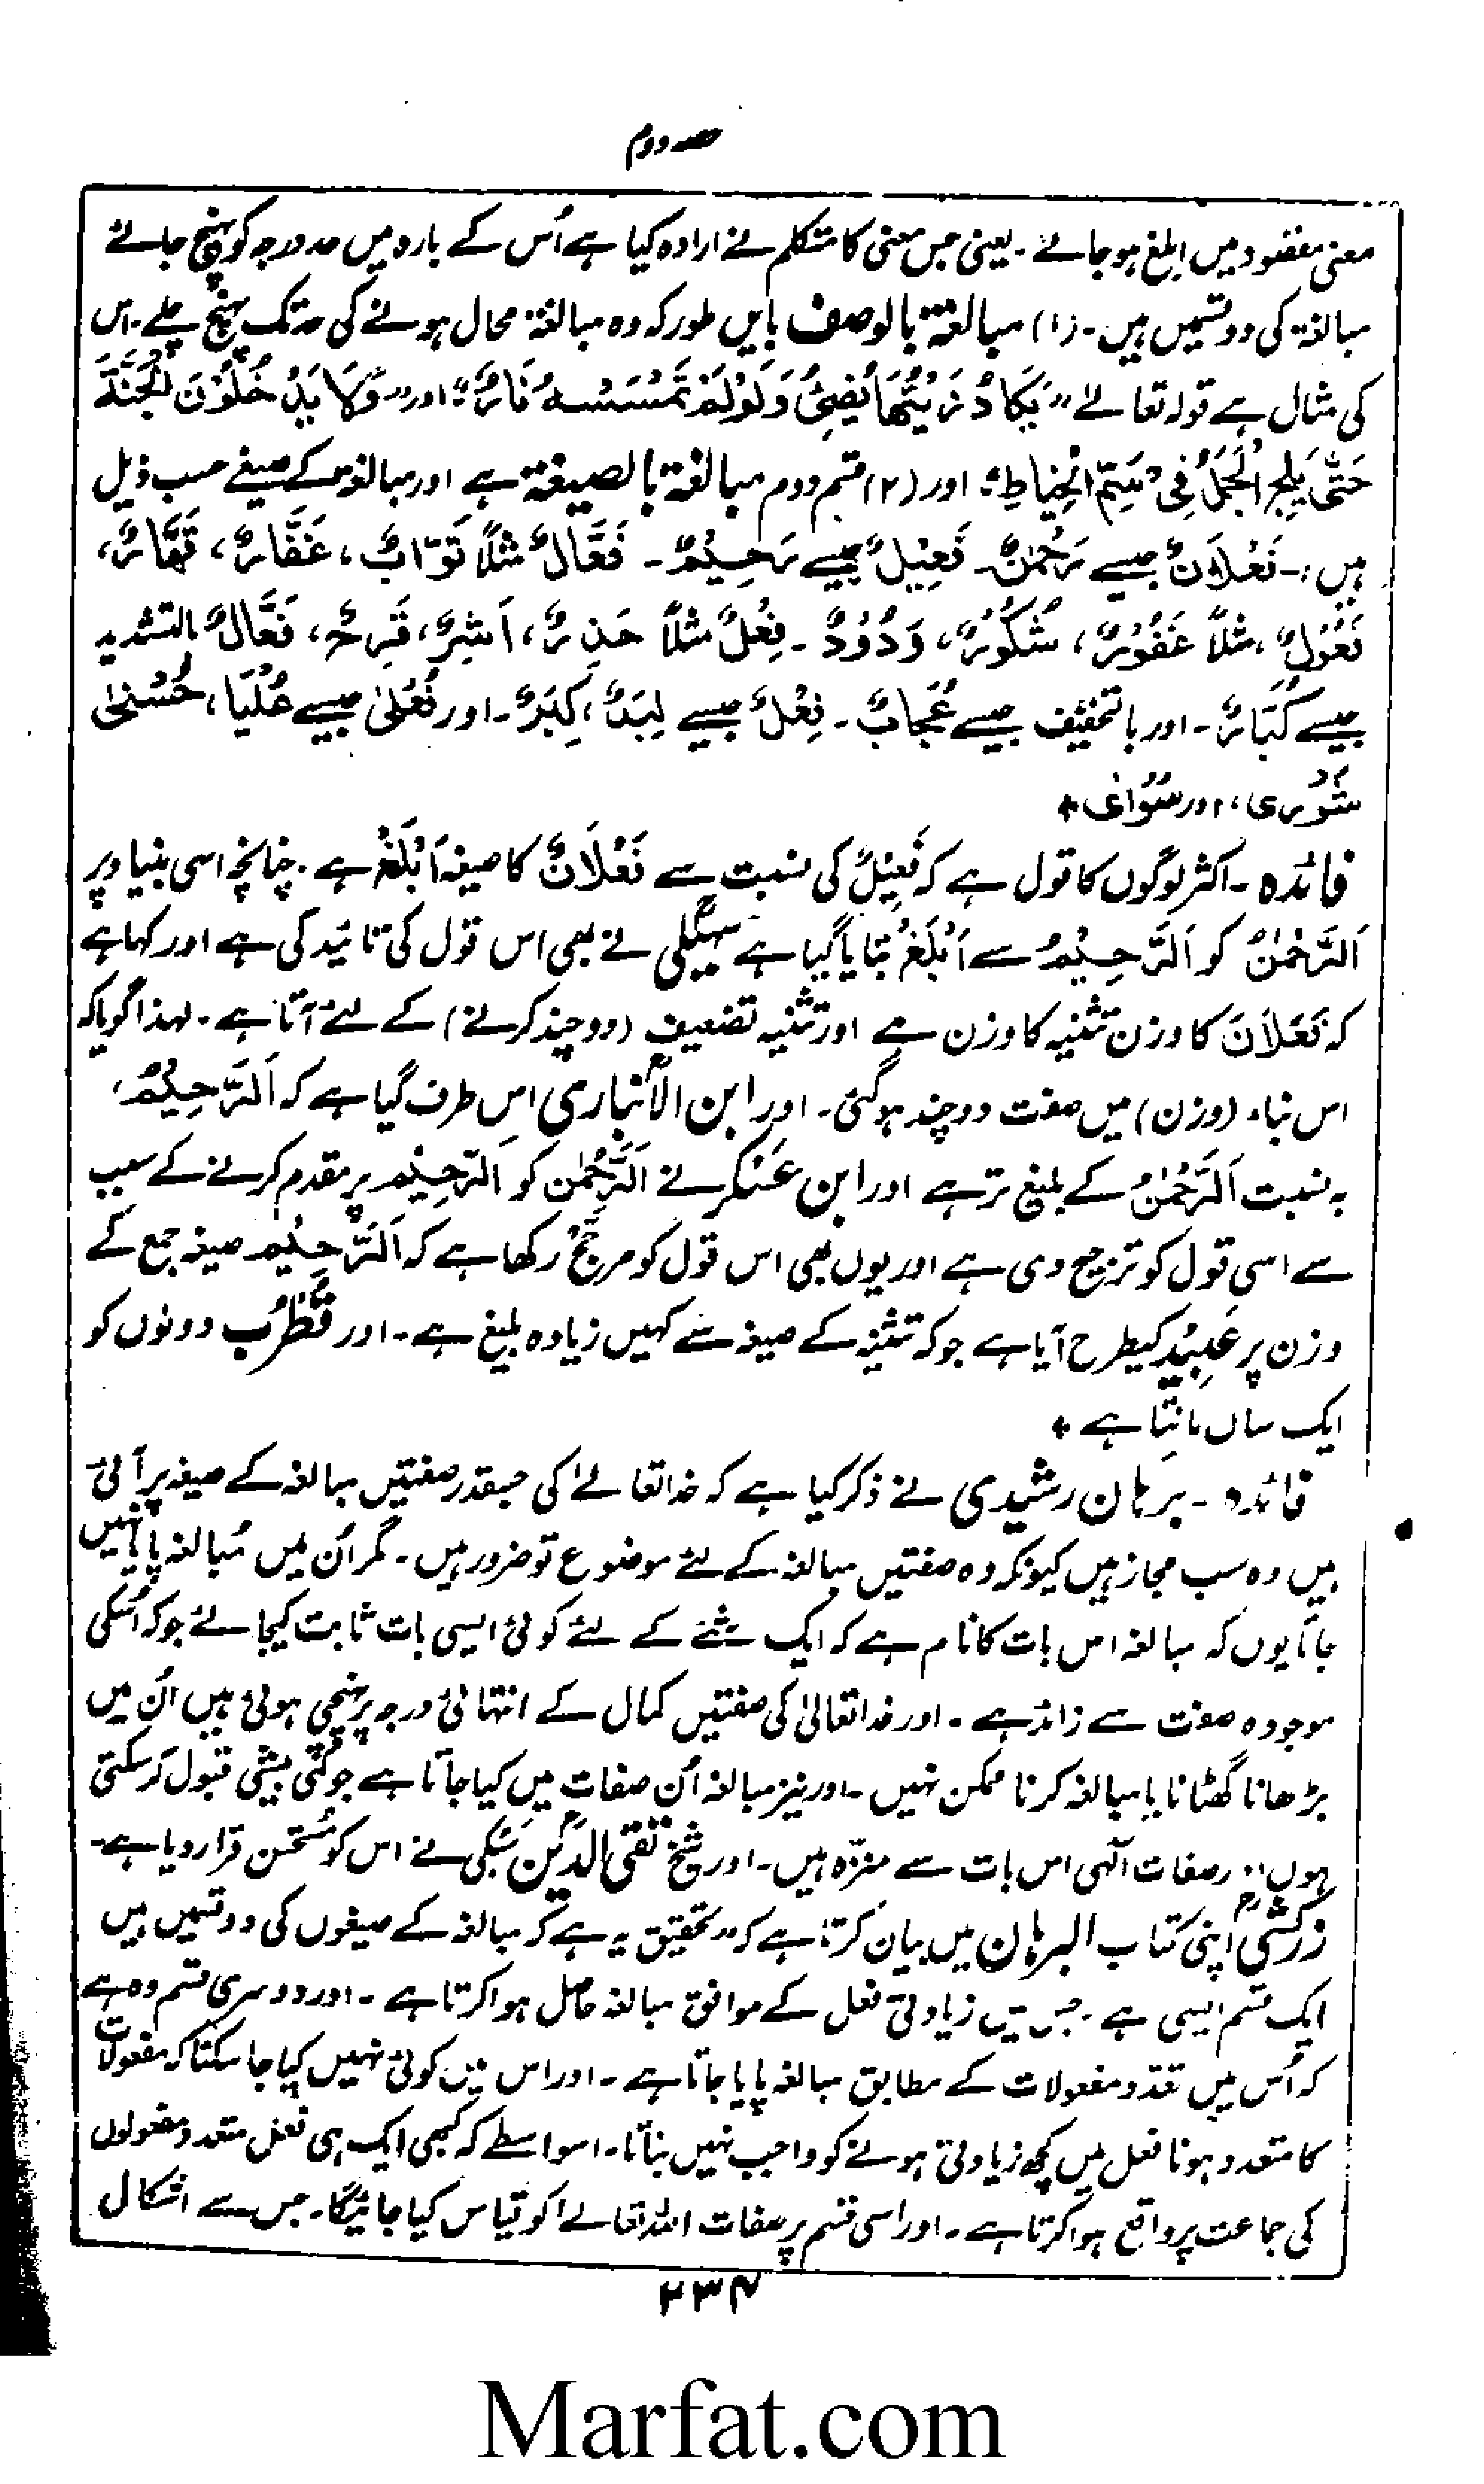 حصہ دوم
معنی مقصود میں ابلغ ہو جائے۔ یعنی جس معنی کا متکلم نے ارادہ کیا ہے اُس کے بارہ میں حد درجہ کو پہنچ جائے
مبالغۃ کی دو قسمیں ہیں۔ (۱) مبالغۃ بالوصف بایں طور کہ وہ مبالغۃ محال ہونے کی حد تک پہنچ چلے۔ اس
کی مثال ہے قولہ تعالےٰ ”یَکَادُ زَیْتُهَا یُضِیْٓئُ وَلَوْلَمْ تَمْسَسْہُ نَارٌ“ اور ”وَلَا یَدْخُلُوْنَ الْجَنَّةَ
حَتّٰی یَلِجَ الْجَمَلُ فِیْ سَمِّ الْخِیَاطِ“ اور (۲) قسم دوم مبالغۃ بالصیغۃ ہے اور مبالغۃ کے صیغے حسب ذیل
ہیں:۔ فَعْلَانٌ جیسے رَحْمٰنٌ۔ فَعِیْلٌ جیسے رَحِیْمٌ۔ فَعَّالٌ مثلاً تَوَّابٌ، غَفَّارٌ، قَهَّارٌ،
فَعُوْلٌ، مثلاً غَفُوْرٌ، شَکُوْرٌ، وَدُوْدٌ۔ فِعُلٌ مثلاً حَذِرٌ، اَشِرٌ، فَرِحٌ، فُعَّالٌ بالتشدید
جیسے کُبَّارٌ۔ اور باتخفیف جیسے عُجَابٌ۔ فُعْلٌ جیسے لِبَدٌ، کِبَرٌ۔ اور فُعْلیٰ جیسے عُلْیَا، حُسْنیٰ
شُوْرٰی، اور سُوْاٰی ٭
فائدہ۔ اکثر لوگوں کا قول ہے کہ فَعِیْلٌ کی نسبت سے فَعْلَانٌ کا صیغہ اَبْلَغْ ہے۔ چنانچہ اسی بنیاد پر
اَلرَّحْمٰنُ کو اَلرَّحِیْمُ سے اَبْلَغُ بتایا گیا ہے سہیلی نے بھی اس قول کی تائید کی ہے اور کہا ہے
کہ فَعْلَانَ کا وزن تثنیہ کا وزن ہے اور تثنیہ تضعیف (دو چند کرنے) کے لئے آتا ہے۔ لہذا گویا کہ
اس بناء (وزن) میں صفت دو چند ہو گئی۔ اور ابن الانباری اِس طرف گیا ہے کہ اَلرَّحِیْمُ،
بہ نسبت اَلرَّحْمٰنُ کے بلیغ تر ہے اور ابن عَسْکر نے اَلرَّحْمٰن کو اَلرَّحِیْم پر مقدم کرنے کے سبب
سے اسی قول کو ترجیح دی ہے اور یوں بھی اس قول کو مرجّح رکھا ہے کہ اَلرَّحِیْم صیغہ جمع کے
وزن پر عَبِیْد کیطرح آیا ہے جو کہ تثنیہ کے صیغہ سے کہیں زیادہ بلیغ ہے۔ اور قُطْرُب دونوں کو
ایک ساں مانتا ہے ٭
فائدہ۔ بُرہان رشیدی نے ذکر کیا ہے کہ خدا تعالےٰ کی جسقدر صفتیں مبالغہ کے صیغہ پر آئی
ہیں وہ سب مجاز ہیں کیونکہ وہ صفتیں مبالغہ کے لئے موضوع تو ضرور ہیں۔ مگر اُن میں مُبالغہ پایا نہیں
جاتا یوں کہ مبالغہ اس بات کا نام ہے کہ ایک شئے کے لئے کوئی ایسی بات ثابت کیجائے جو کہ اُسکی
موجودہ صفت سے زائد ہے۔ اور خدا تعالیٰ کی صفتیں کمال کے انتہائی درجہ پر پہنچی ہوئی ہیں اُن میں
بڑھانا گھٹانا یا مبالغہ کرنا ممکن نہیں۔ اور نیز مبالغہ اُن صفات میں کیا جاتا ہے جو کمی بیشی قبول کرسکتی
ہوں اور صفات الٰہی اس بات سے منزّہ ہیں۔ اور شیخ تقی الدین سبکی نے اس کو مستحسن قرار دیا ہے۔
زرکشی اپنی کتاب البرہان میں بیان کرتا ہے کہ ”تحقیق یہ ہے کہ مبالغہ کے صیغوں کی دو قسمیں ہیں
ایک قسم ایسی ہے۔ جس میں زیادتی فعل کے موافق مبالغہ حاصل ہوا کرتا ہے۔ اور دوسری قسم وہ ہے
کہ اُس میں تعدّد مفعولات کے مطابق مبالغہ پایا جاتا ہے۔ اور اس میں کوئی نہیں کیا جا سکتا کہ مفعولات
کا متعدد ہونا فعل میں کچھ زیادتی ہونے کو واجب نہیں بناتا۔ اسواسطے کہ کبھی ایک ہی فعل متعدد مفعولوں
کی جماعت پر واقع ہوا کرتا ہے۔ اور اسی قسم پر صفات اللہ تعالےٰ کو قیاس کیا جائیگا۔ جس سے اشکال
۲۳۴
Marfat.com